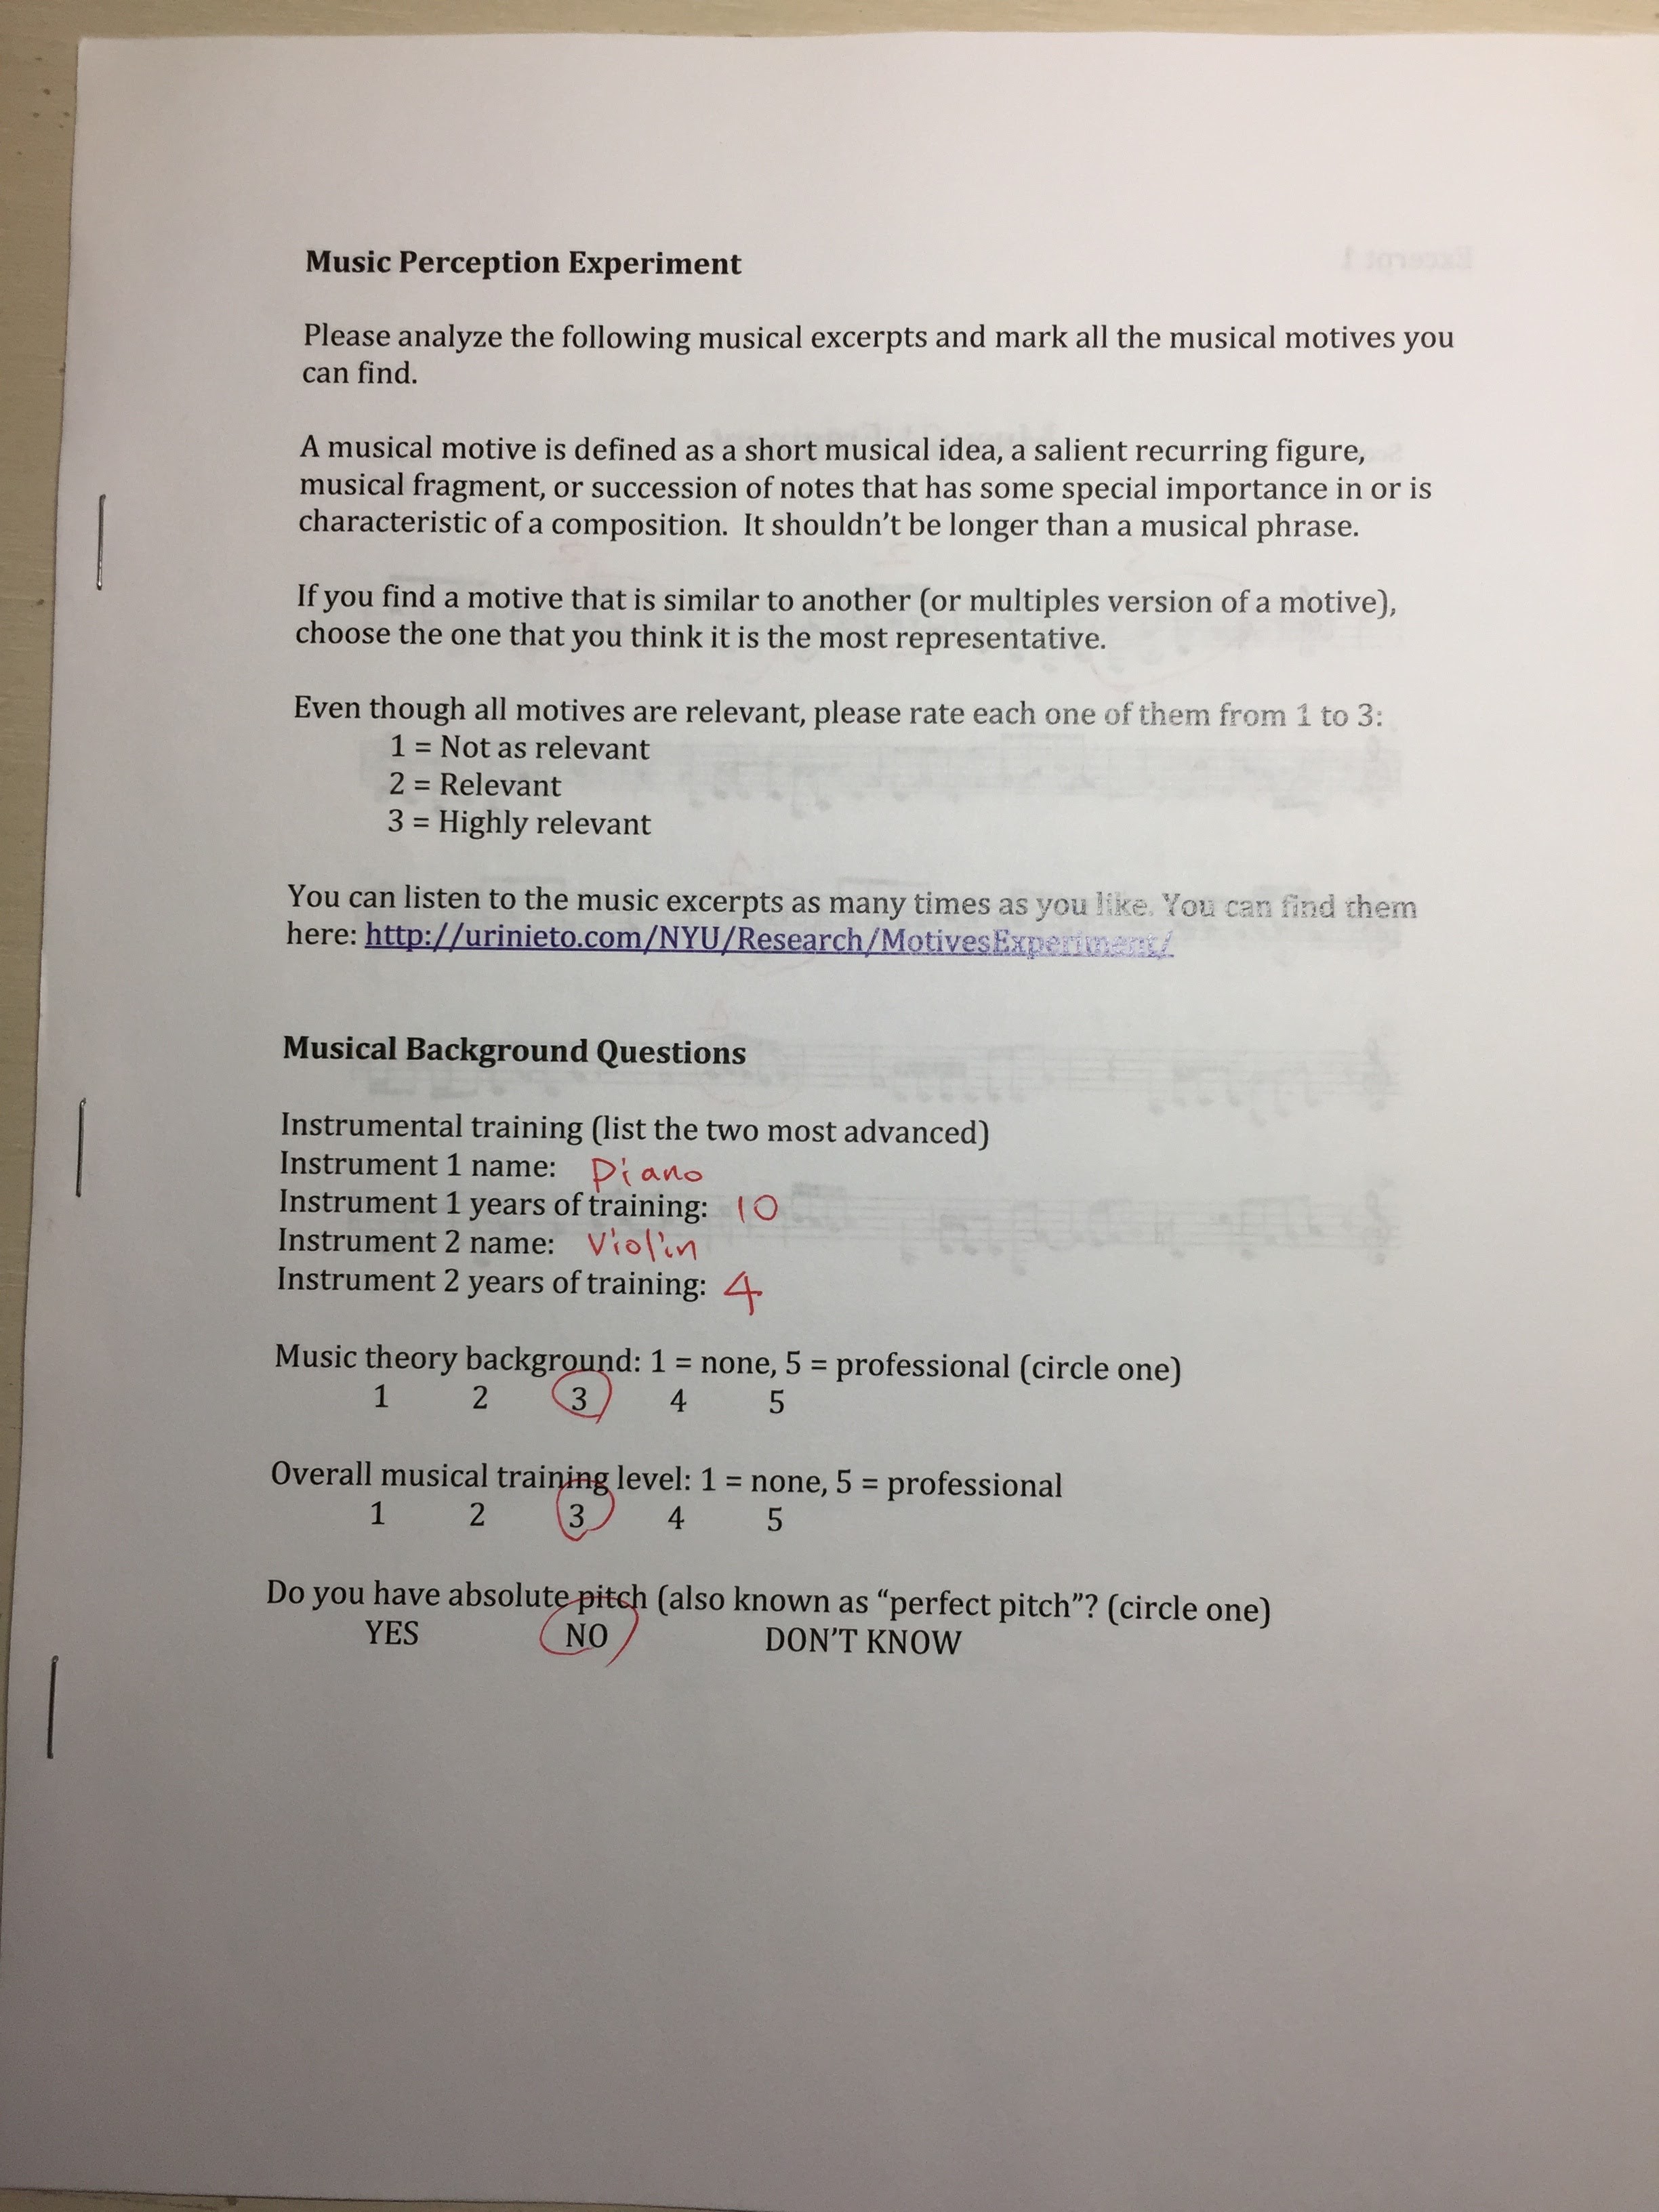 Music Perception Experiment
Please analyze the following musical excerpts and mark all the musical motives you
can find.
A musical motive is defined as a short musical idea, a salient recurring figure,
musical fragment, or succession of notes that has some special importance in or is
characteristic of a composition.  It shouldn't be longer than a musical phrase.
If you find a motive that is similar to another (or multiples version of a motive),
choose the one that you think it is the most representative.
Even though all motives are relevant, please rate each one of them from 1 to 3:
1 = Not as relevant
2 = Relevant
3 = Highly relevant
You can listen to the music excerpts as many times as you like. You can find them
here: http://urinieto.com/NYU/Research/MotivesExperiment/
Musical Background Questions
Instrumental training (list the two most advanced)
Instrument 1 name: Piano
Instrument 1 years of training: 10
Instrument 2 name: Violin
Instrument 2 years of training: 4
Music theory background: 1 = none, 5 = professional (circle one)
1 2 3 4 5
Overall musical training level: 1 = none, 5 = professional
1 2 3 4 5
Do you have absolute pitch (also known as “perfect pitch”? (circle one)
YES NO DON'T KNOW